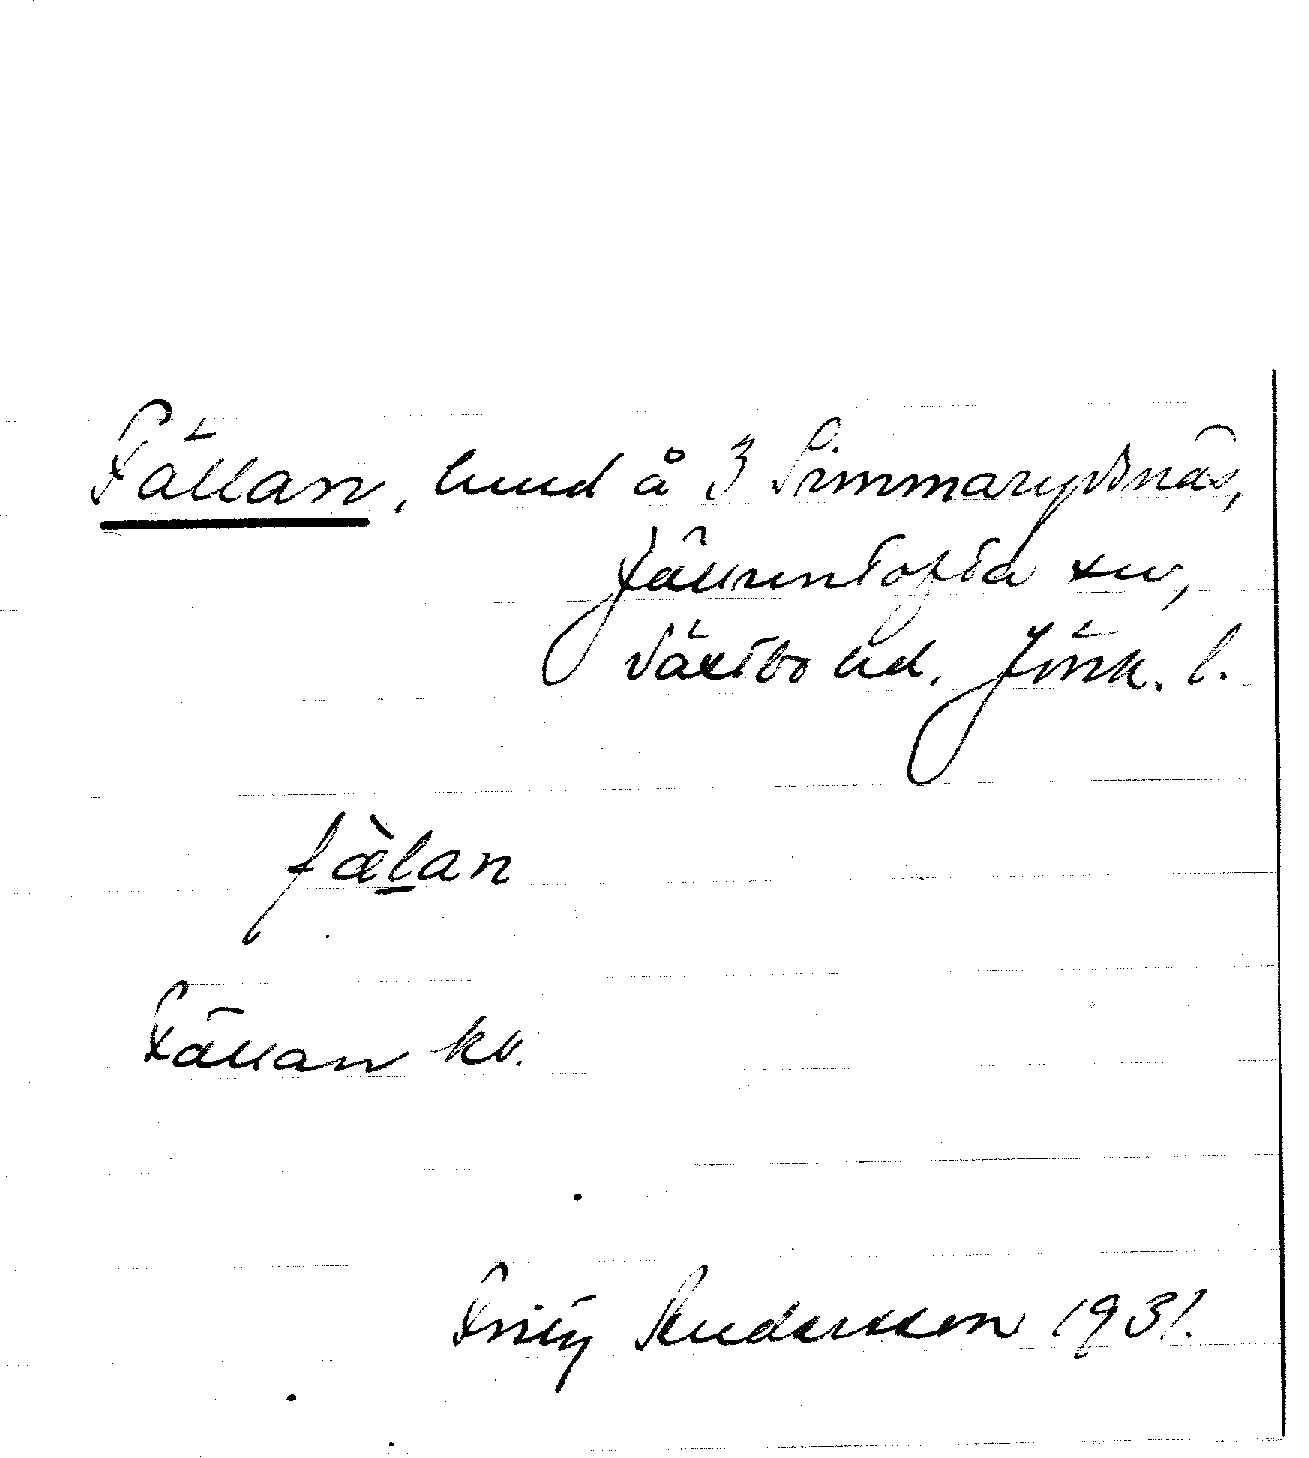 Fällan, lund å 3 Simmarydsnäs,
Källerstofta sn,
Västbo hd. Jönk. l.
fæ̀lan
Fällan kv.
Fritz Andersson 1931.